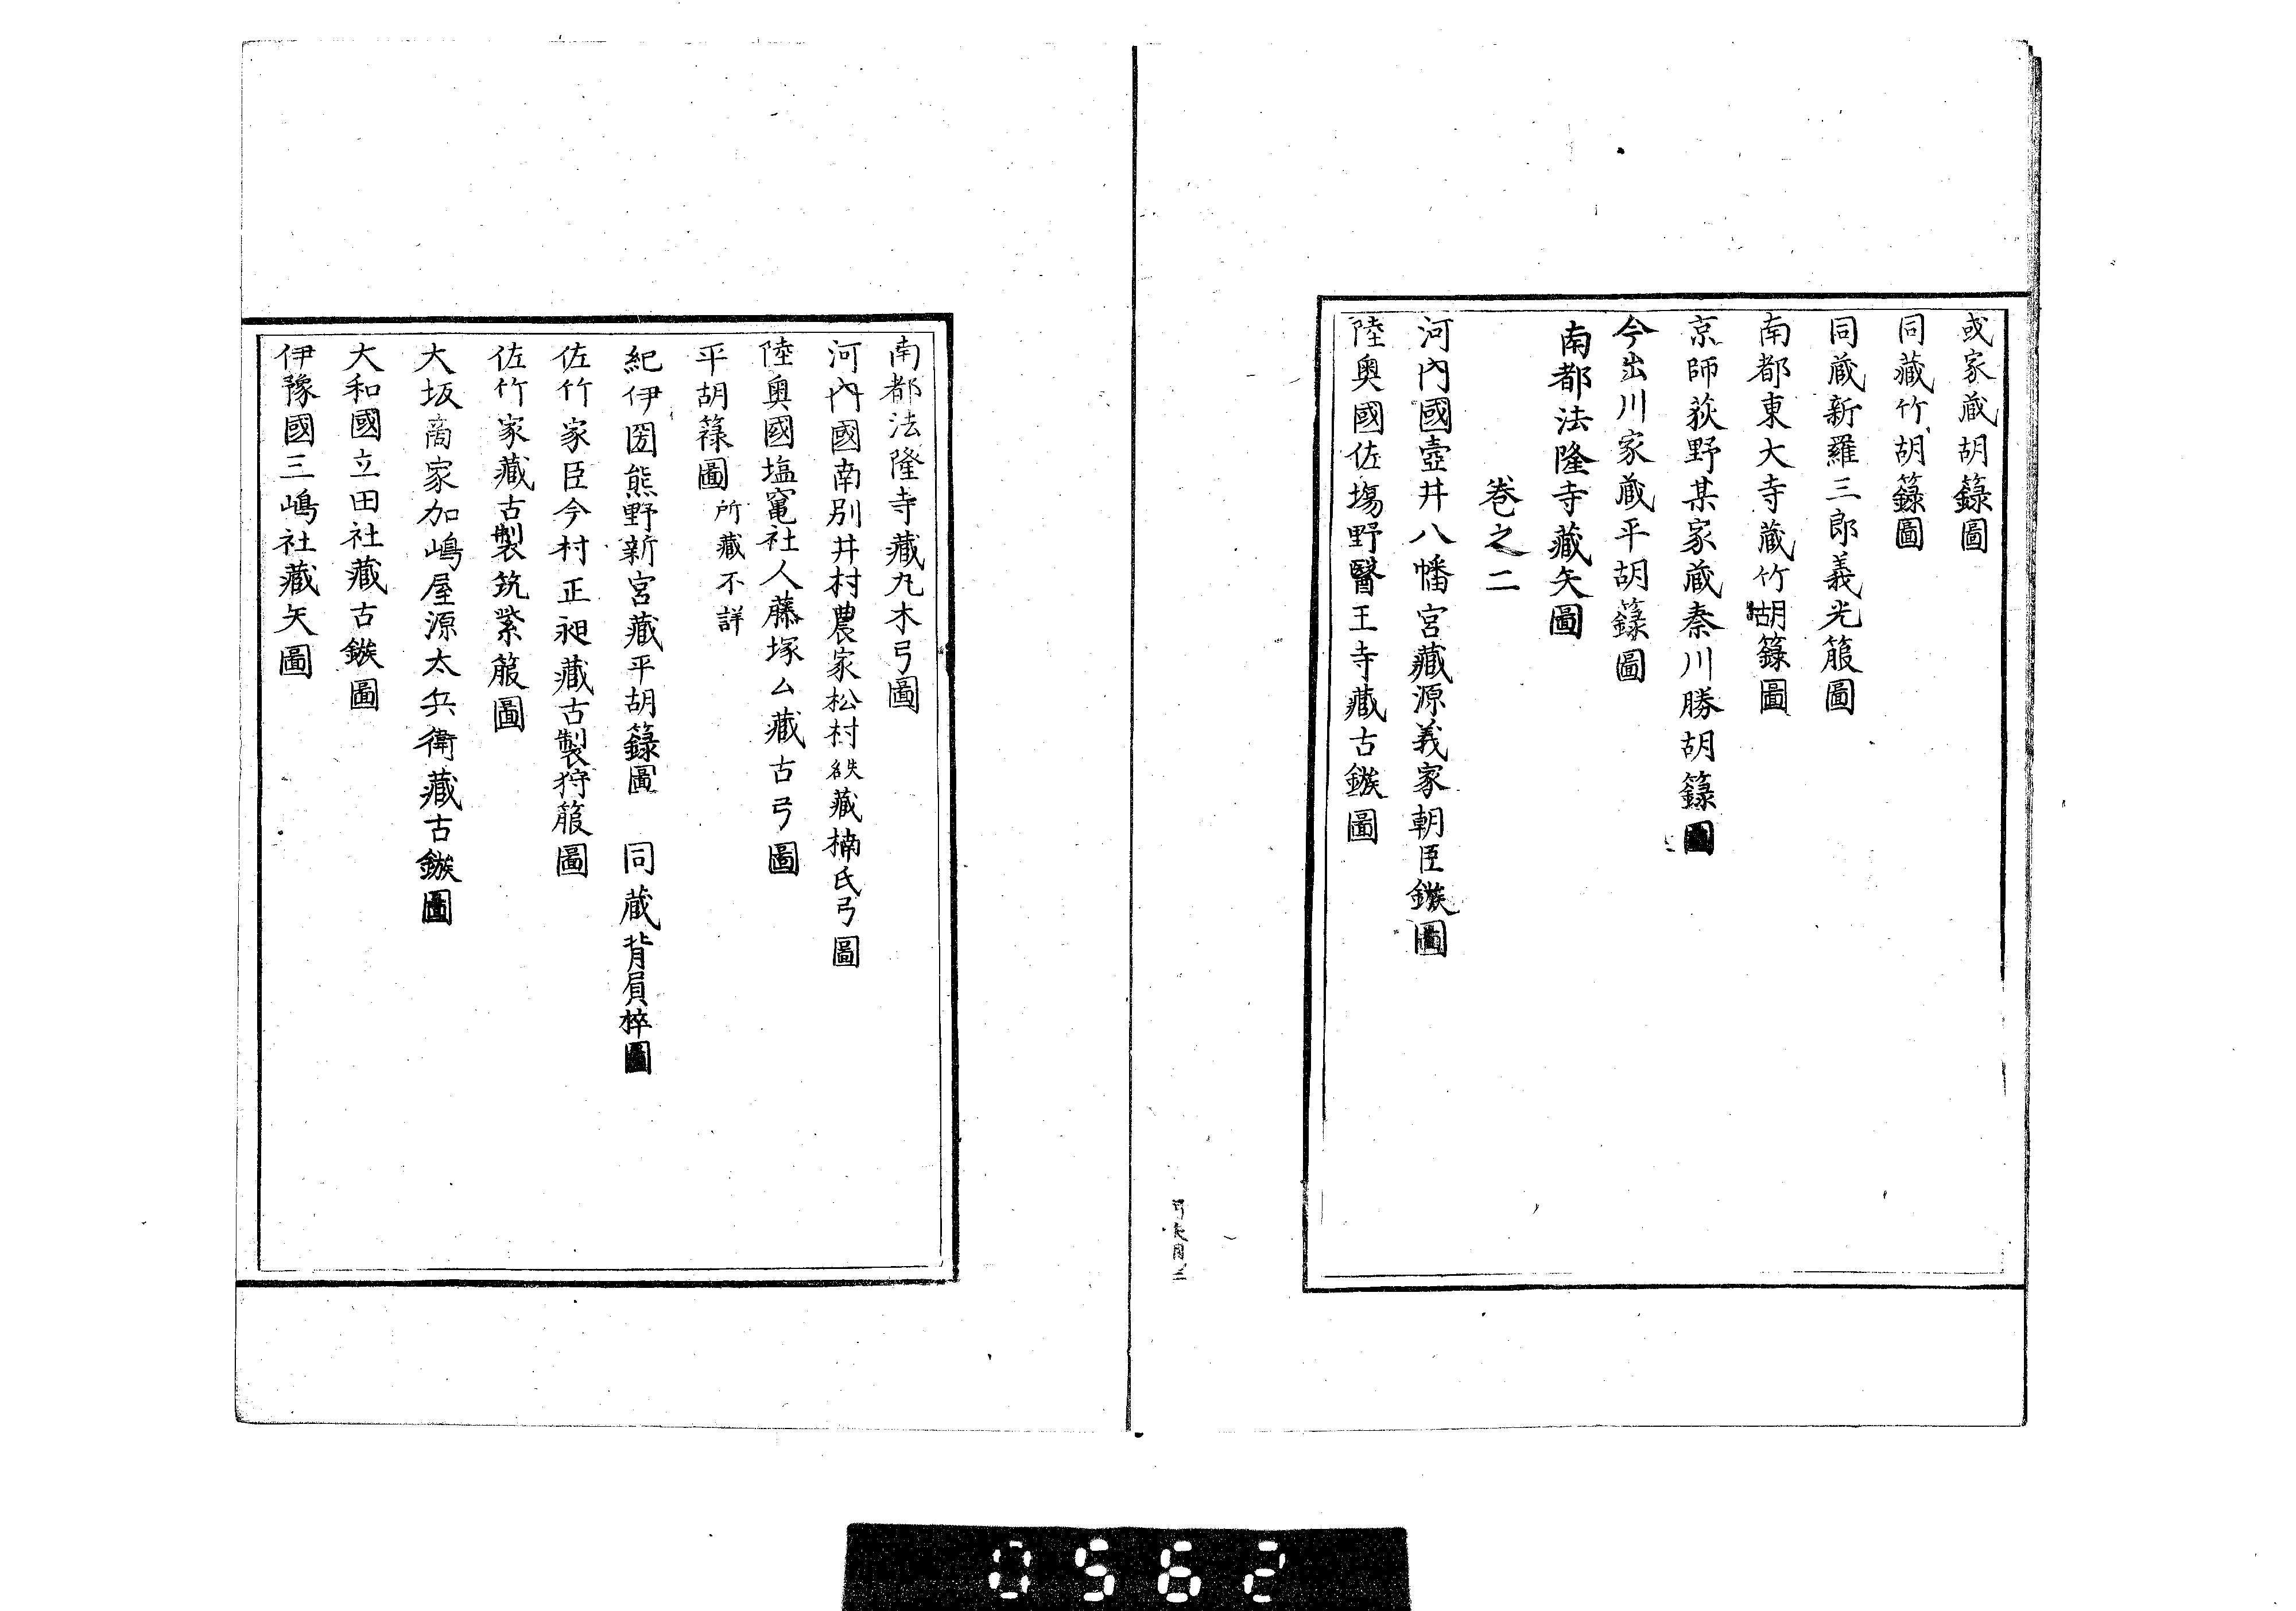 或家蔵胡籙圖
同藏竹胡籙圖
同蔵新羅三郎義光箙圖
南都東大寺蔵竹胡籙圖
京師荻野某家蔵秦川勝胡籙圖
今出川家蔵平胡籙圖
南都法隆寺藏矢圖
卷之二
河內國壺井八幡宮藏源義家朝臣鏃圖
陸奧國佐塲野醫王寺藏古鏃圖
南都法隆寺藏丸木弓圖
河內國南別井村農家松村名失藏楠氏弓圖
陸奧國塩竃社人藤塚厶藏古弓圖
平胡籙圖所藏不詳
紀伊圀熊野新宮藏平胡籙圖 同蔵背負梓圖
佐竹家臣今村正昶藏古製狩箙圖
佐竹家藏古製筑紫箙圖
大坂商家加嶋屋源太兵衛藏古鏃圖
大和國立田社藏古鏃圖
伊豫國三嶋社藏矢圖
0562